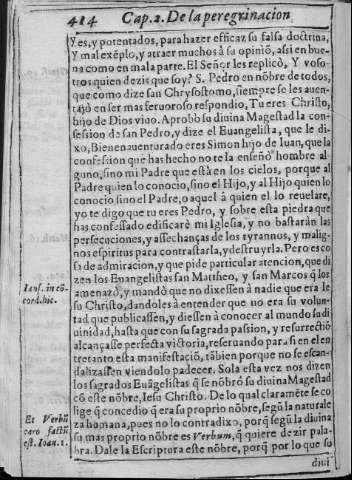 414 Cap. 2. De la peregrinacion
yes, y potentados, para hazer eficaz su falsa doctrina,
y mal exẽplo, y atraer muchos à su opiniõ, assi en bue
na como en mala parte. El Señor les replicò, Y voso-
tros quien dezis que soy? S. Pedro en nõbre de todos,
que como dize san Chrysostomo, siempre se les auen-
tajò en ser mas feruoroso respondio, Tu eres Christo,
hijo de Dios viuo. Aprobò su diuina Magestad la con-
fession de san Pedro, y dize el Euangelista, que le di-
xo, Bienauenturado eres Simon hijo de Iuan, que la
confession que has hecho no te la enseñò hombre al
guno, sino mi Padre que està en los cielos, porque al
Padre quien lo conocio, sino el Hijo, y al Hijo quien lo
conocio sino el Padre, o aquel à quien el lo reuelare,
yo te digo que tu eres Pedro, y sobre esta piedra que
has confessado edificarè mi Iglesia, y no bastaràn las
persecuciones, y assechanças de los tyrannos, y malig-
nos espiritus para contrastarla, y destruyrla. Pero es co
sa de admiracion, y que pide particular atencion, que di
zen los Euangelistas san Mattheo, y san Marcos q̃ los
amenazò, y mandò que no dixessen à nadie que era Ie
su Christo, dandoles à entender que no era su volun-
tad que publicassen, y diessen à conocer al mundo su di
uinidad, hasta que con su sagrada passion, y resurrectiõ
alcançasse perfecta victoria, reseruando para si en el en
tretanto esta manifestaciõ, tãbien porque no se escan-
dalizassen viendolo padecer. Sola esta vez nos dizen
los sagrados Euãgelistas q̃ se nõbrò su diuina Magestad
cõ este nõbre, Iesu Christo. De lo qual claramẽte se co
lige q̃ concedio q̃ era su proprio nõbre, segũ la naturale
za humana, pues no lo contradixo, porq̃ segũ la diuina
su mas proprio nõbre es Verbum, q̃ quiere dezir pala-
bra. Dale la Escriptura este nõbre, porq̃ por lo que su
diui
Ians. in cõ
cord. hic.
Et Verbũ
caro factũ
est. Ioan. 1.